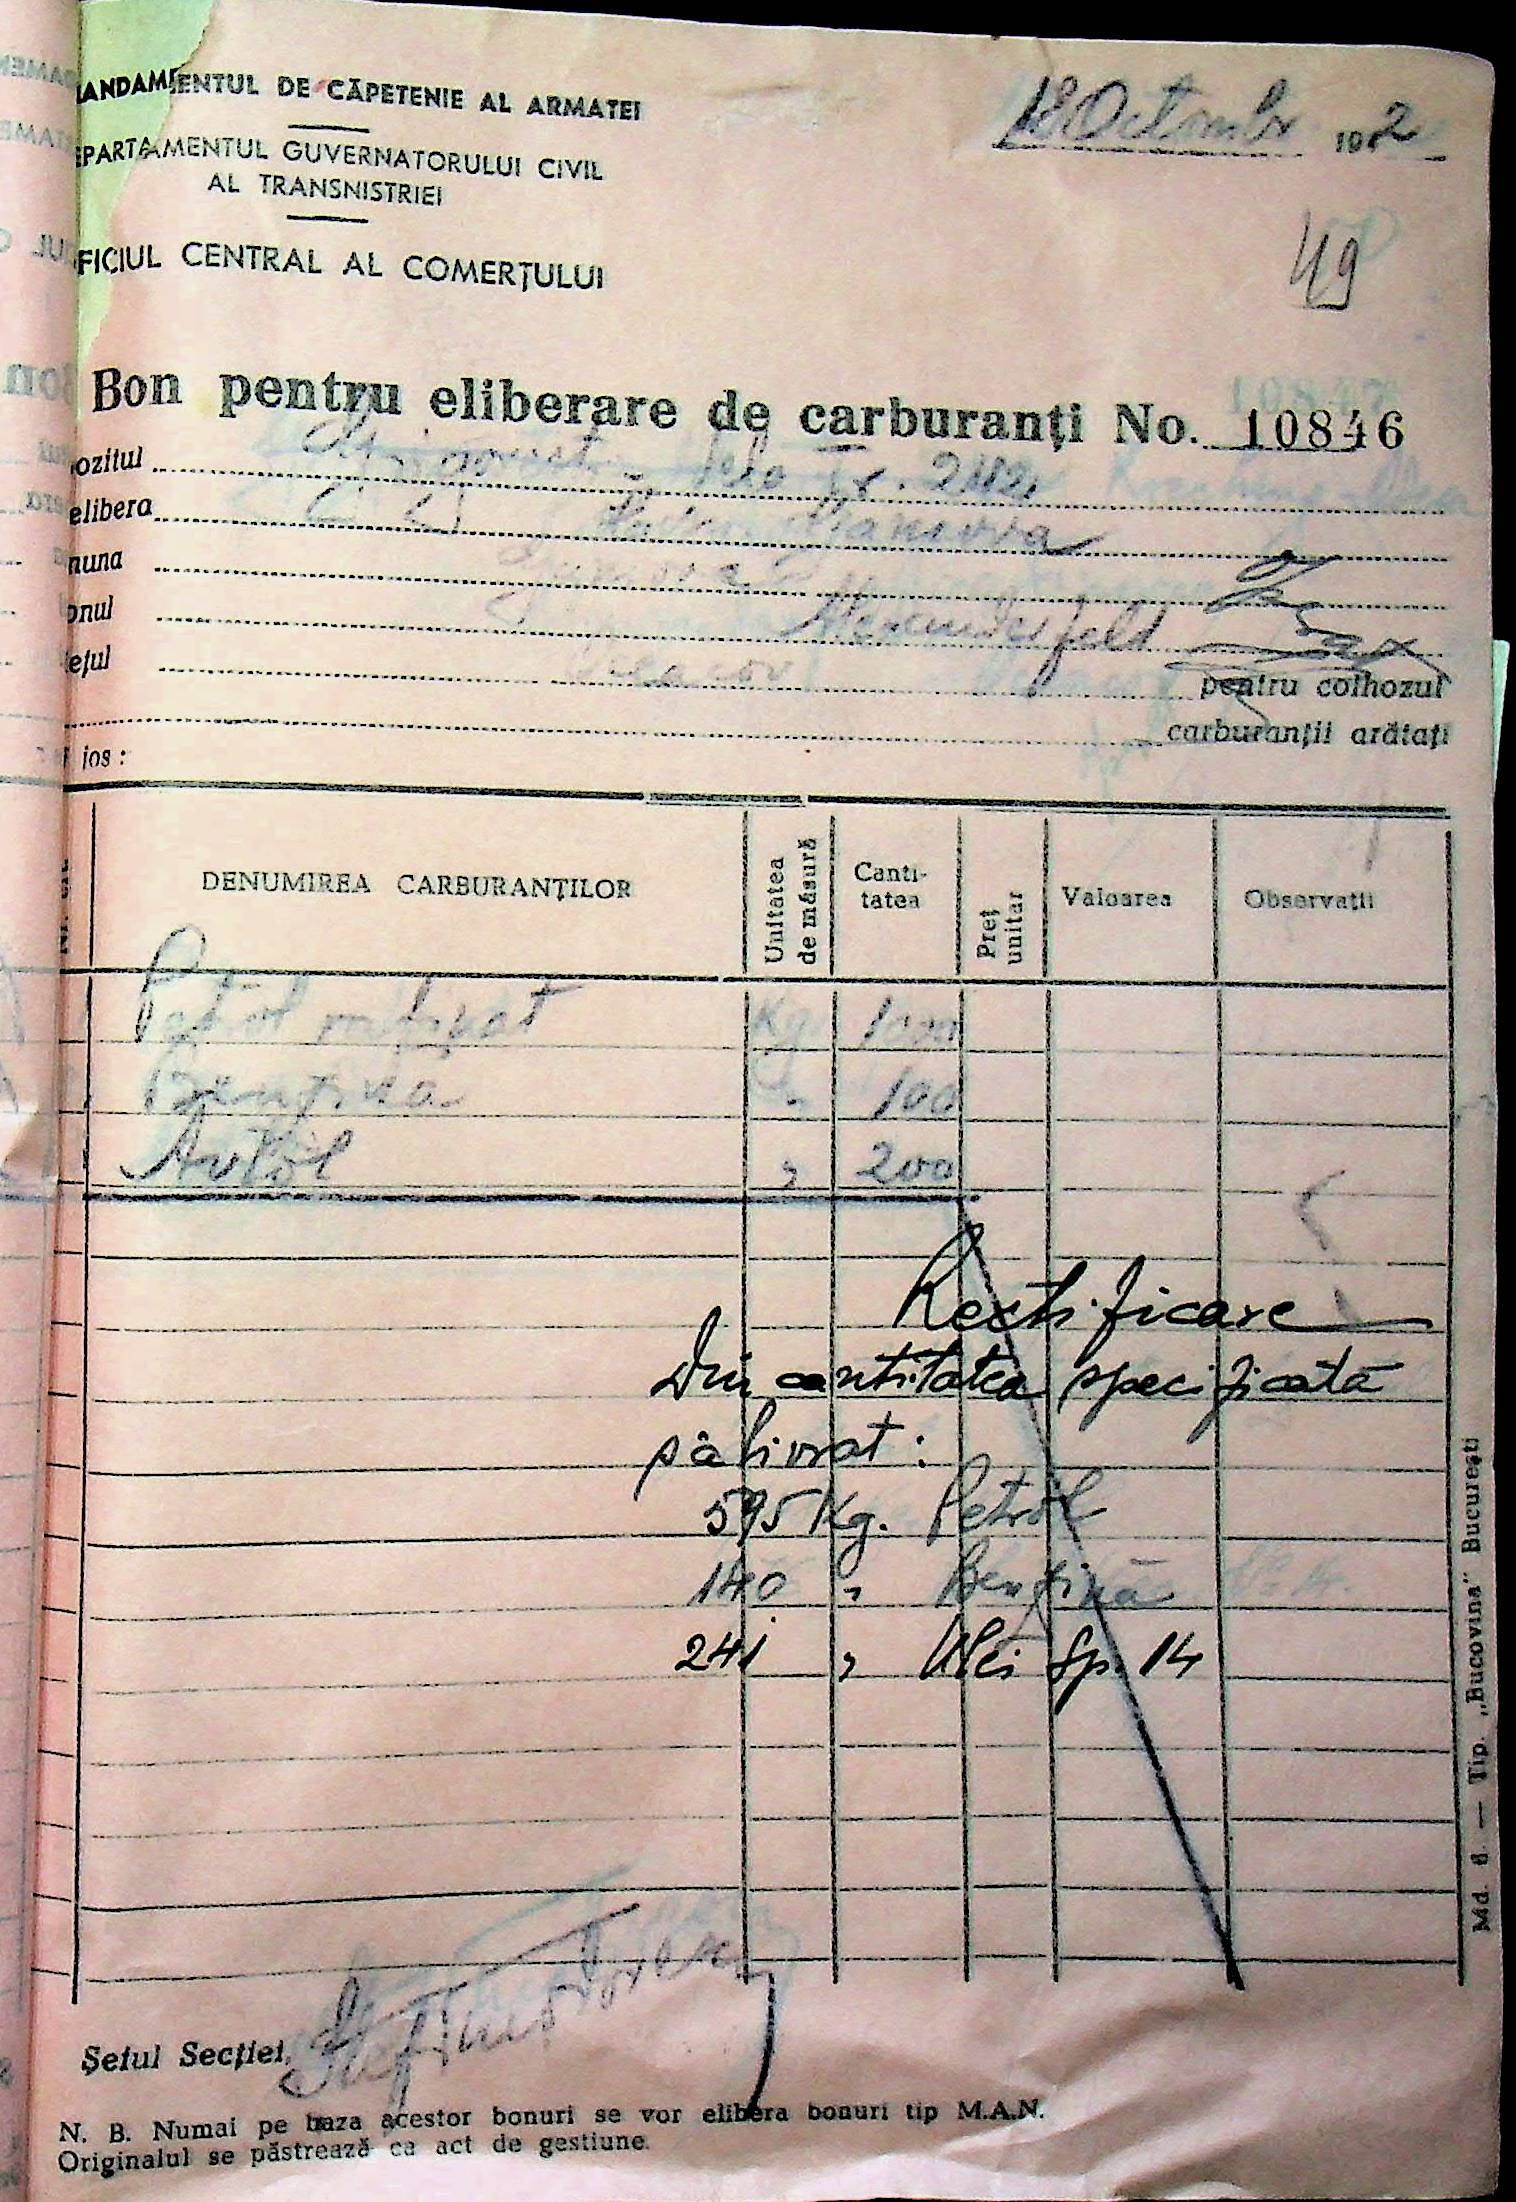 ANDAMENTUL DE CĂPETENIE AL ARMATEI
EPARTAMENTUL GUVERNATORULUI CIVIL
AL TRANSNISTRIEI
FICIUL CENTRAL AL COMERȚULUI
18 Octombr 1942
49
Bon pentru eliberare de carburanți No. 10846
ozitul
elibera
muna
onul
ețul
pentru colhozul
carburanții arătați
jos :
DENUMIREA CARBURANȚILOR
Unitatea de măsură
Canti-tatea
Preț unitar
Valoarea
Observații
Petrol rafinat Kg 1000
Benzina " 100
Avtol " 200
Rectificare
Din cantitatea specificată
s'a livrat :
595 Kg. Petrol
140 " Benzină
241 " Ulei Sp. 14
Șeful Secției,
N. B. Numai pe baza acestor bonuri se vor elibera bonuri tip M.A.N.
Originalul se păstrează ca act de gestiune.
Md. 6. — Tip. „Bucovina" București